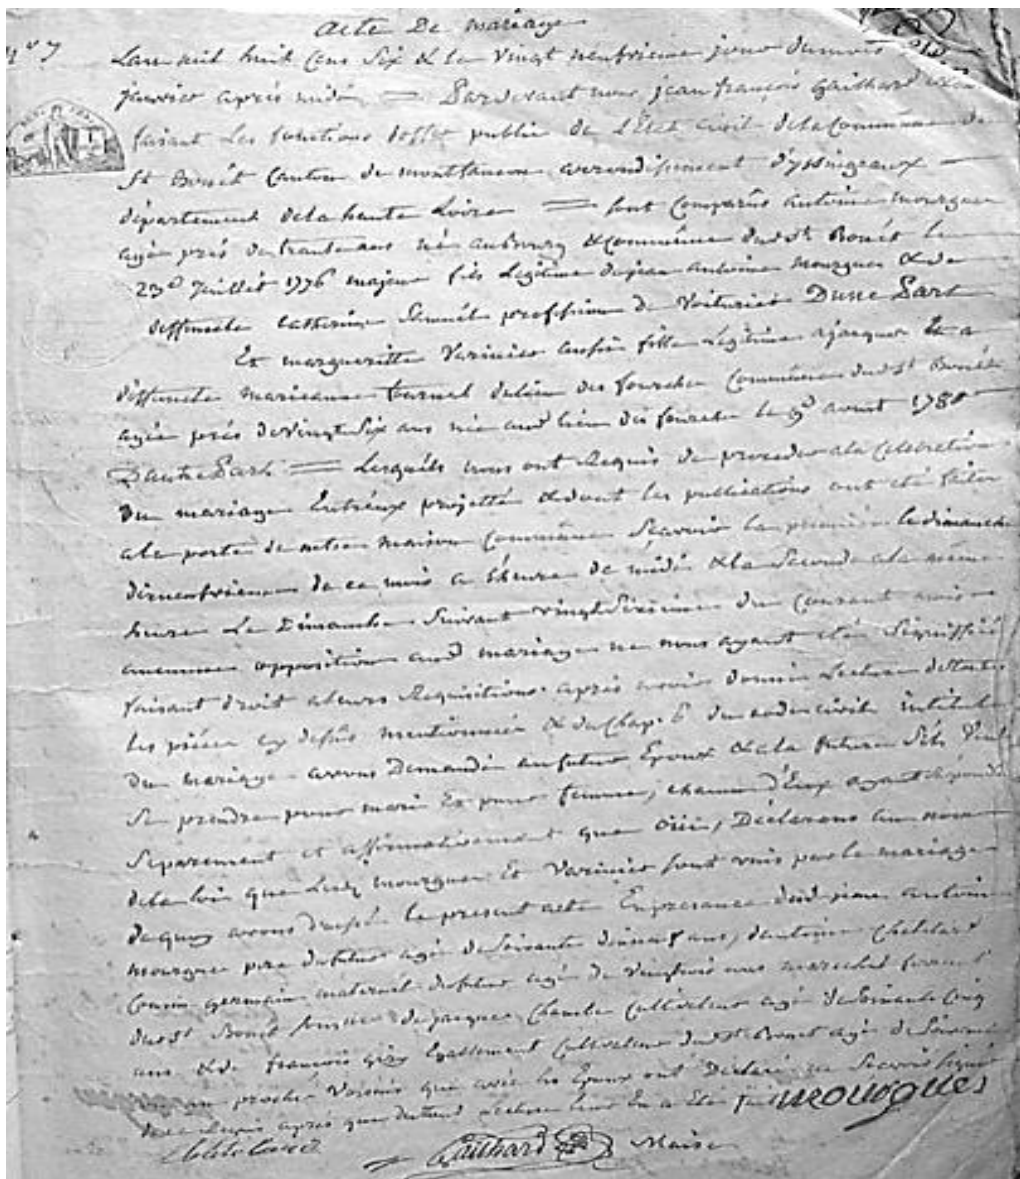 acte De mariage
n° 7
Lan mil huit Cens Six & le vingt neufvieme jour du mois de
janvier après midi = Pardevant nous jean françois Gailhard
faisant les fonctions d'offer public de l'Etat Civil dela Commune de
St Bonét Canton de montfaucon arrondissement d'yssingeaux
département dela haute Loire = sont Comparûs antoine mourgues
agé près de trante ans né au Bourg & Commune dud St Bonét le
23e Juillét 1776 majeur fils legitime de jean antoine mourgues & de
deffuncte Catherine profession de Voiturier D'une Part
Et margueritte Varinier aussi fille legitime a jacques & a
deffuncte marieanne tournel du lieu des fourches Commune dud St Bonét
agée près de vingt Six ans née aud lieu des fourches le 9e avril 1780
D'autre Part = Lesquéls nous ont Requis de proceder a la Celebration
Du mariage Entréux projetté & dont les publications ont été faites
a la porte de notre maison Commune Scavoir la premiere le dimanche
dixneufvieme de ce mois a l'heure de midi & la Seconde a la même
heure Le Dimanche Suivant vingt Sixieme du Courant mois
aucunne opposition aud mariage ne nous ayant été Signiffiée
faisant droit a leurs Requisitions après avoir donnée Lecture de toutes
les pièces cy dessus mentionnées & du Chap. 6 du code civile intitulé
Du mariage avons Demandé au futur Epoux & a la future S'ils Veulent
Se prendre pour mari Et pour femme, chacun d'Eux ayant répondu
Séparement et affirmativement que oüi, Déclarons au nom
dela loi que Lesd mourgues Et Varinier sont unis par le mariage
de quoy avons dressé le présent acte En présance dud jean antoine
mourgues père du futur agé de Soixante dixneuf ans, d'antoine Chatelard
Cousin germain maternél du futur agé de vingt trois ans marechal ferrant
dud St Bonét de jacques Chambe Cultivateur agé de Soixante Cinq
ans & de françois gery Egallement Cultivateur dud St Bonet agé de Soixante
ans proches Voisins qui avec les Epoux ont Declaré ne Scavoir Signer
de ce Requis après que du tout lecture leur En a Eté faite
mourgues
Chatelard
Gailhard Maire